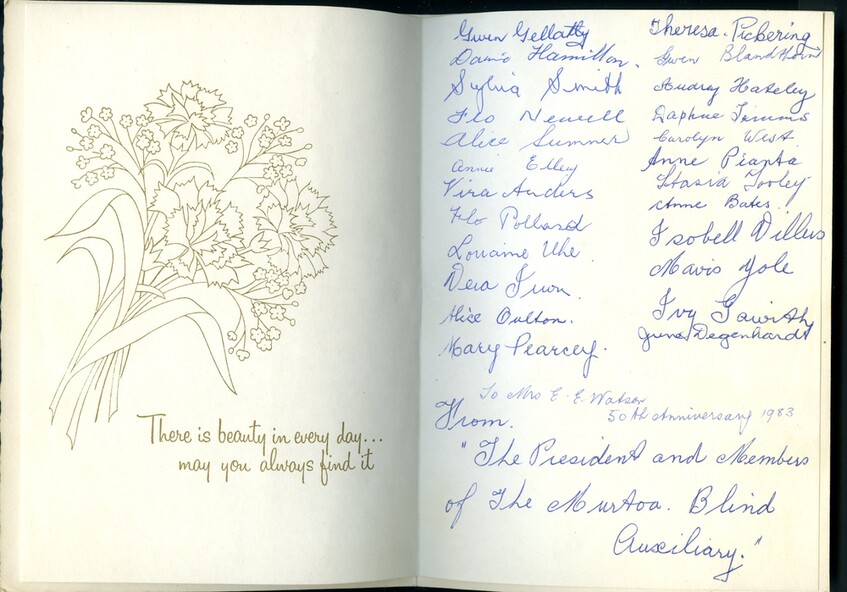 There is beauty in every day...
may you always find it
Gwen Gellatly
David Hamilton.
Sylvia Smith
Flo Newell
Alice Sumner
Annie Elley
Vira Anders
Flo Pollard
Lorraine Uhe.
Vera Irwin.
Alice Oulton.
Mary Pearcey.
Theresa. Pickering
Gwen Blandthorn
Audrey Hateley
Daphne Timms
Carolyn West
Anne Pianta
Stasia Tooley
Anne Bates.
Isobell
Mavis Yole
Ivy
June Degenhardt
To Mrs E. E. Watson
50th Anniversary 1983
From.
"The President and Members
of The Murtoa. Blind
Auxiliary."